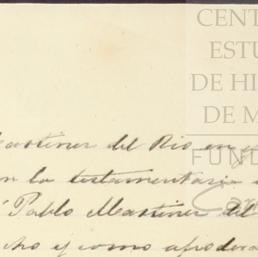 CENT
ESTU
DE HI
DE M
FUND
Martinez del Rio en
la testamentaria
Pablo Martinez del
cho y como apodera